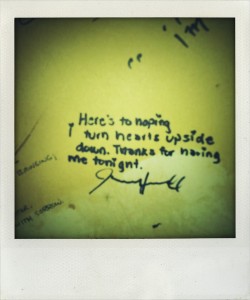 I'm
Here's to hoping
I turn hearts upside
down. Thanks for having
me tonight.